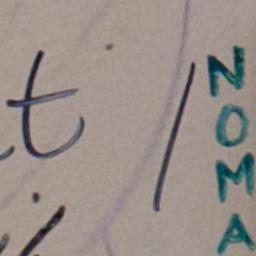 t /
NOMA